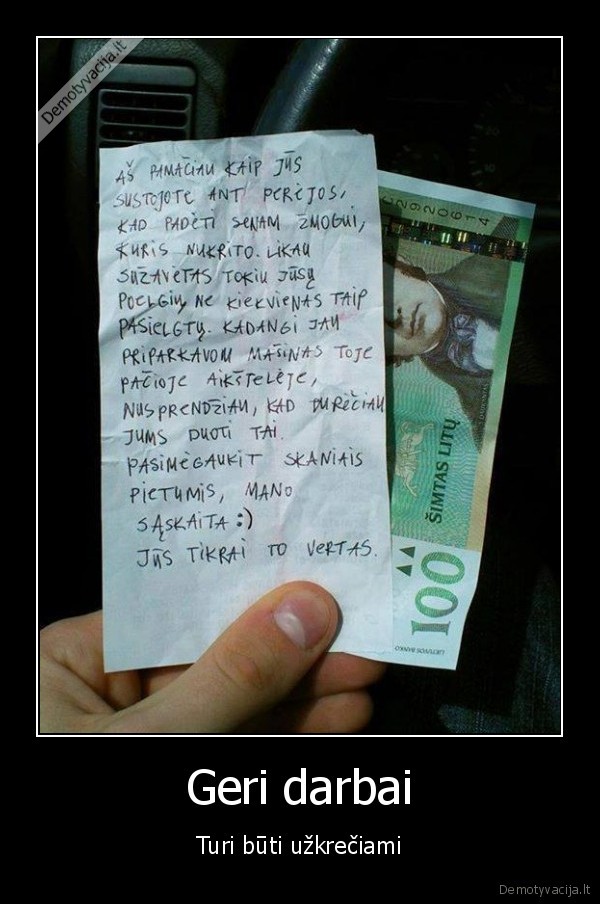 Demotyvacija.lt
AŠ PAMAČIAU KAIP JŪS
SUSTOJOTE ANT PERĖJOS,
KAD PADĖTI SENAM ŽMOGUI,
KURIS NUKRITO. LIKAU
SUŽAVĖTAS TOKIU JŪSŲ
POELGIU, NE KIEKVIENAS TAIP
PASIELGTŲ. KADANGI JAU
PRIPARKAVOM MAŠINAS TOJE
PAČIOJE AIKŠTELĖJE,
NUSPRENDŽIAU, KAD PURĖČIAU
JUMS DUOTI TAI.
PASIMĖGAUKIT SKANIAIS
PIETUMIS, MANO
SĄSKAITA :)
JŪS TIKRAI TO VERTAS.
2920614
ŠIMTAS LITŲ
100
LIETUVOS BANKO
Geri darbai
Turi būti užkrečiami
Demotyvacija.lt